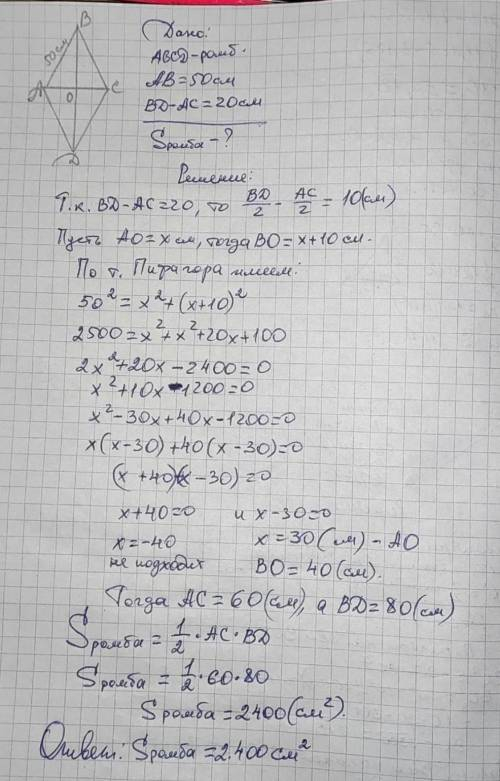 B
50см
A
O
C
D
Дано:
ABCD-ромб.
AB=50см
BD-AC=20см
Sромба-?
Решение:
Т.к. BD-AC=20, то BD/2 - AC/2 = 10(см)
Пусть AO=x см, тогда BO=x+10 см.
По т. Пифагора имеем:
50²=x²+(x+10)²
2500=x²+x²+20x+100
2x²+20x-2400=0
x²+10x-1200=0
x²-30x+40x-1200=0
x(x-30)+40(x-30)=0
(x+40)(x-30)=0
x+40=0 и x-30=0
x=-40 x=30(см)-AO
не подходит BO=40(см).
Тогда AC=60(см), а BD=80(см)
Sромба=1/2·AC·BD
Sромба=1/2·60·80
Sромба=2400(см²).
Ответ: Sромба=2.400см²